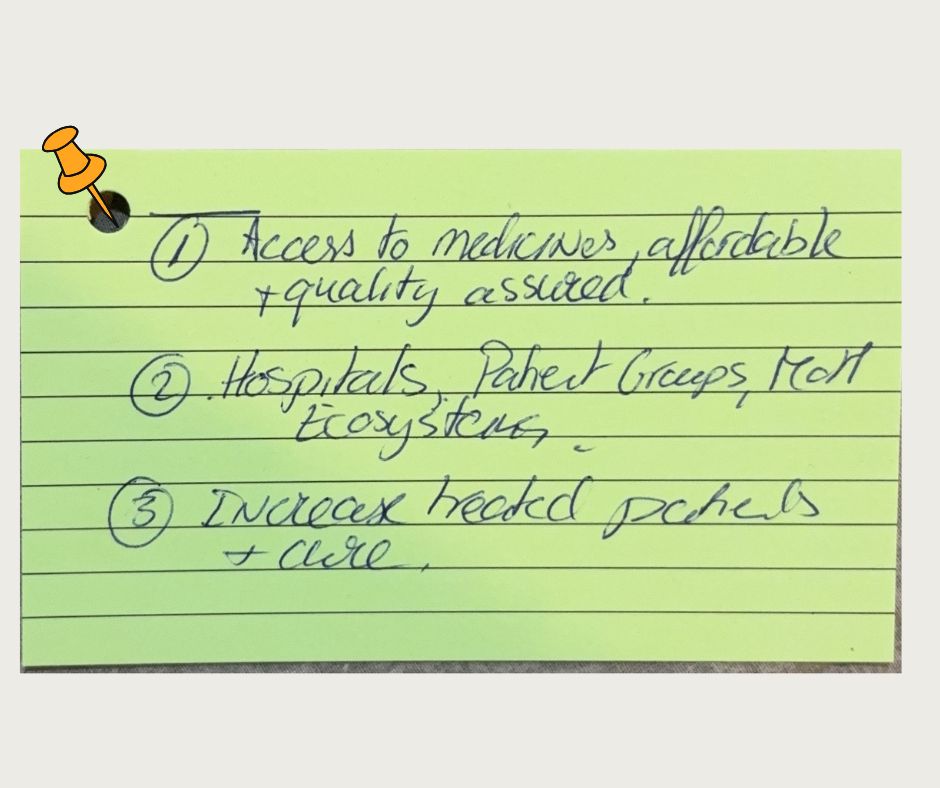 ① Access to medicines, affordable
+ quality assured.
② Hospitals, Patient Groups, MoH
Ecosystems,
③ Increase treated patients
+ cure.